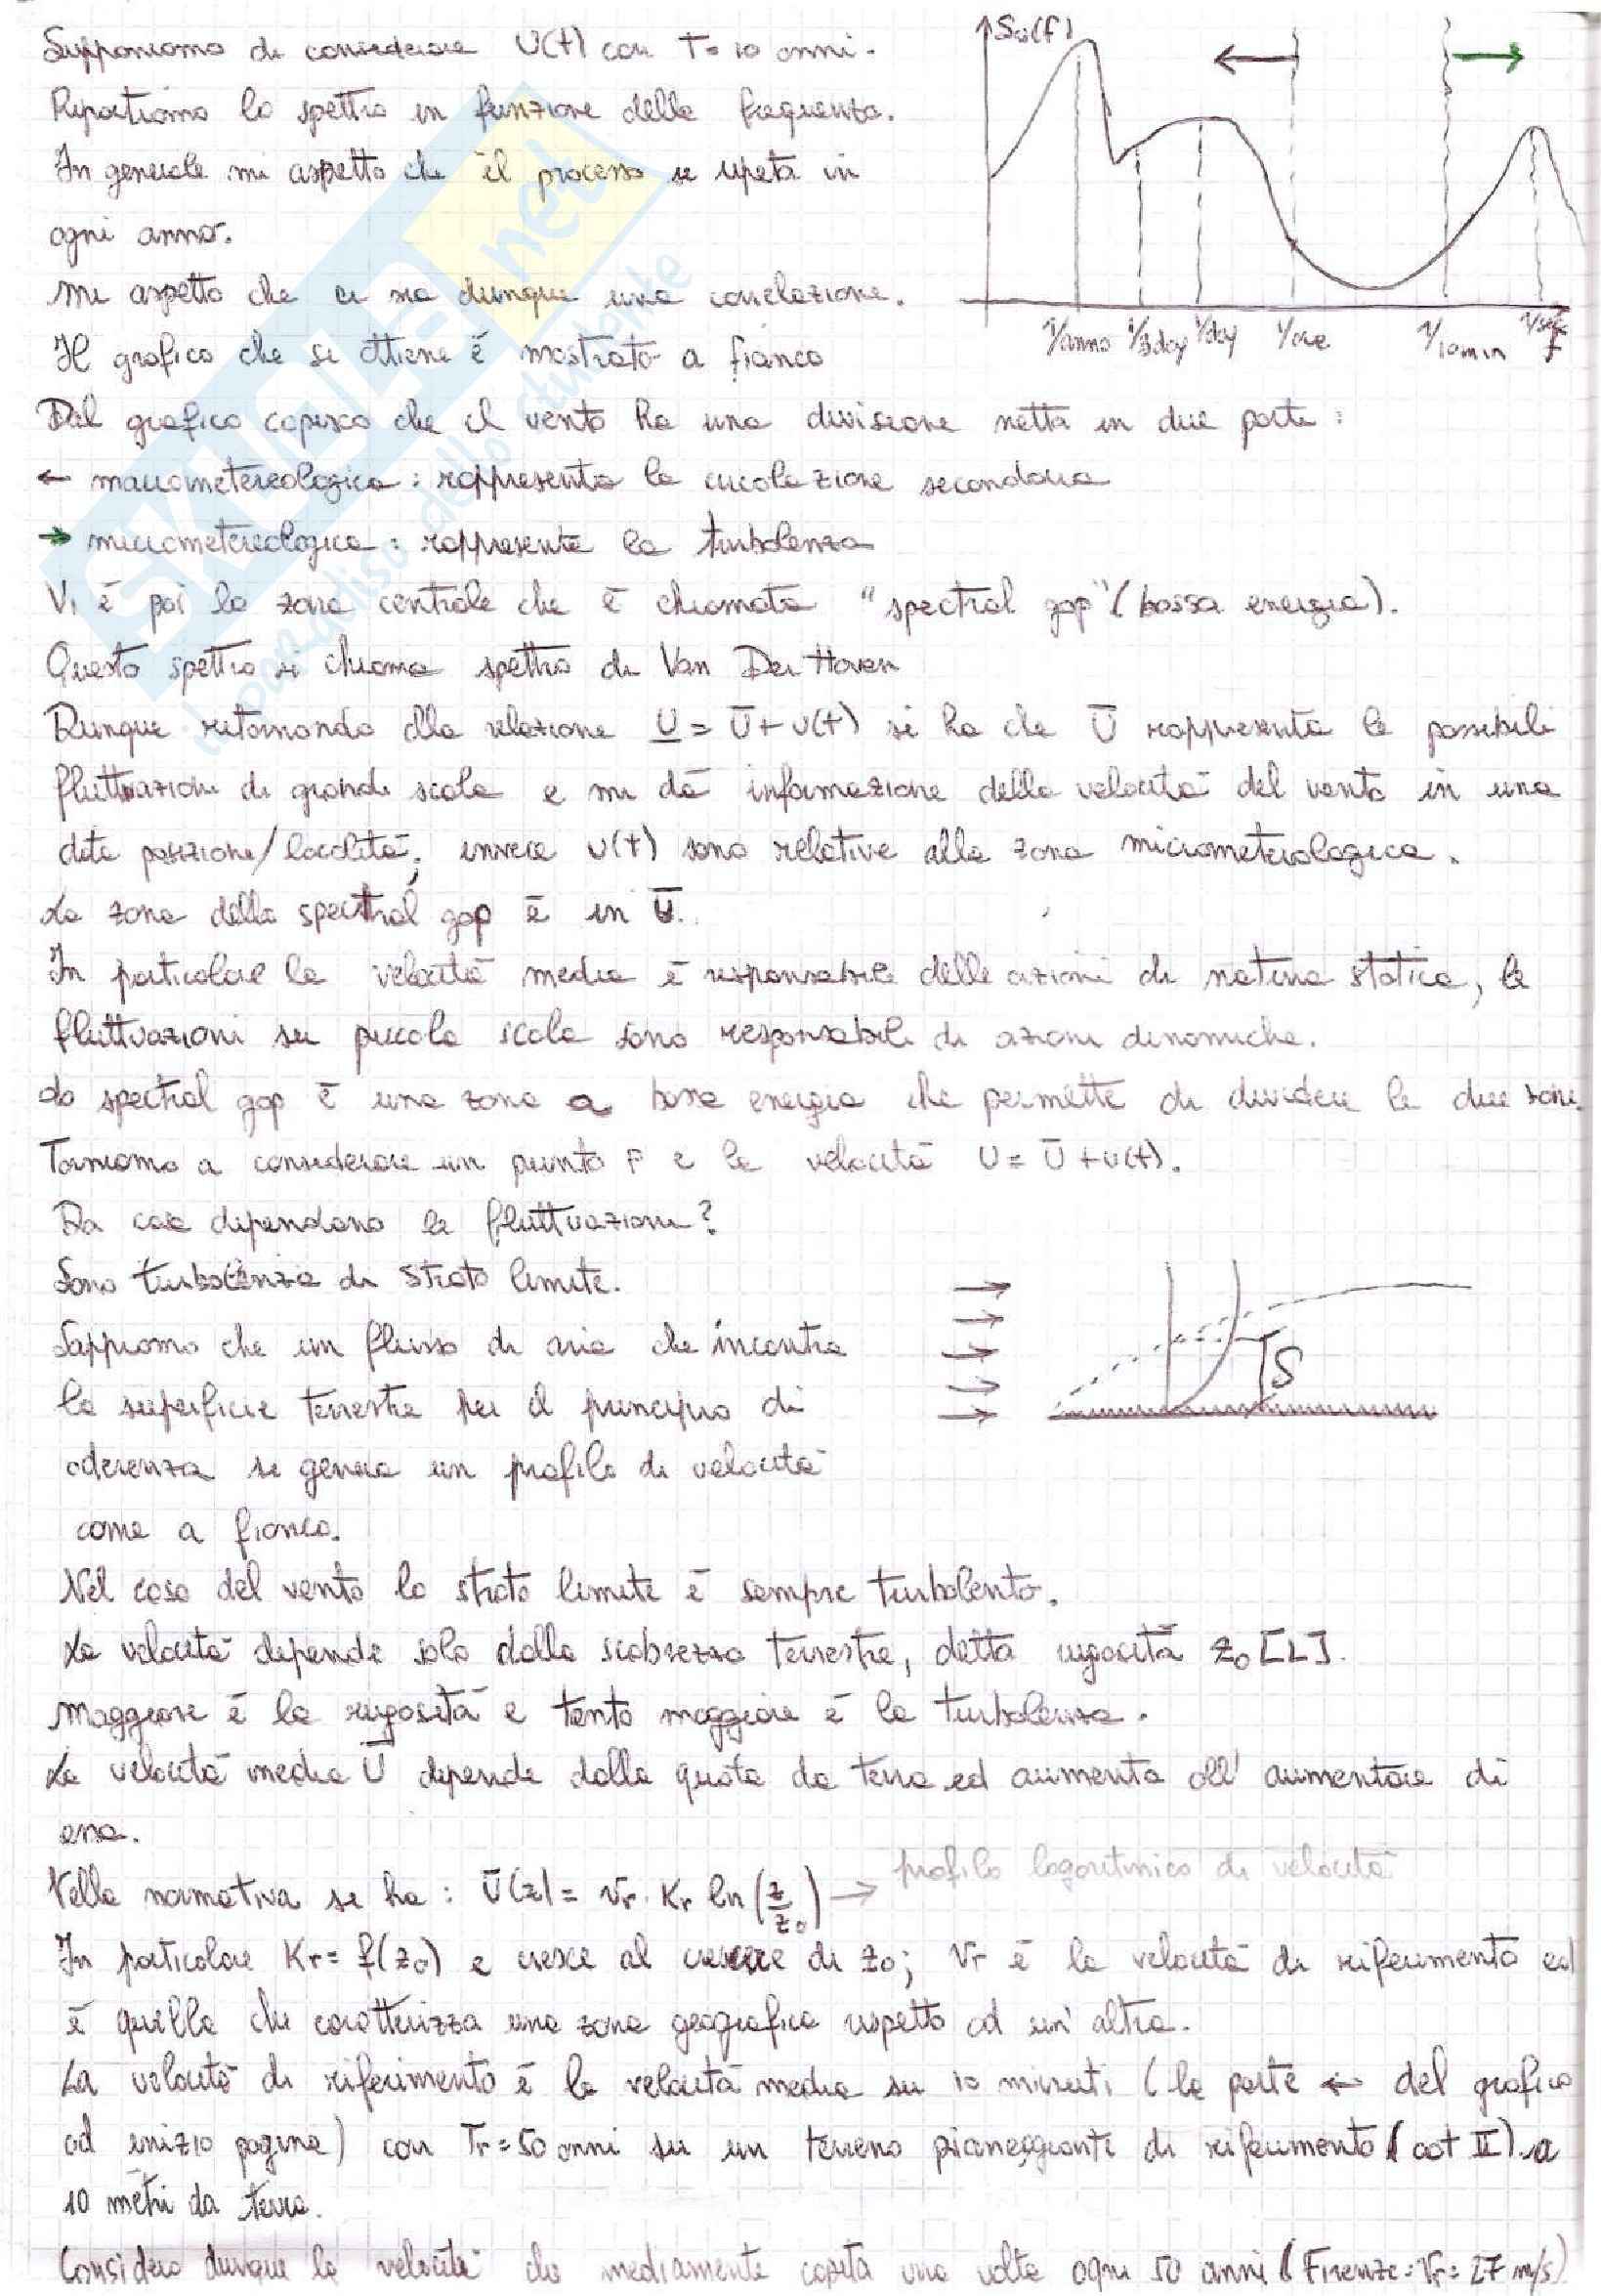 Supponiamo di considerare U(t) con T=10 anni.
Riportiamo lo spettro in funzione della frequenza.
In generale mi aspetto che il processo si ripeta in
ogni anno.
Mi aspetto che ci sia dunque una correlazione.
Il grafico che si ottiene è mostrato a fianco
Su(f)
1/anno 1/3day 1/day 1/ora 1/10min 1/sec f
Dal grafico capisco che il vento ha una divisione netta in due parti:
← macrometereologica: rappresenta la circolazione secondaria
→ micrometereologica: rappresenta la turbolenza
Vi è poi la zona centrale che è chiamata "spectral gap" (bassa energia).
Questo spettro si chiama spettro di Van Der Hoven
Dunque ritornando alla relazione U = Ū + u(t) si ha che Ū rappresenta le possibili
fluttuazioni di grande scala e mi dà informazione della velocità del vento in una
data posizione/località; invece u(t) sono relative alla zona micrometeriologica.
La zona dello spectral gap è in Ū.
In particolare la velocità media è responsabile delle azioni di natura statica, le
fluttuazioni su piccola scala sono responsabili di azioni dinamiche.
Lo spectral gap è una zona a bassa energia che permette di dividere le due zone.
Torniamo a considerare un punto P e la velocità U = Ū + u(t).
Da cosa dipendono le fluttuazioni?
Sono turbolenza di strato limite.
Sappiamo che un flusso di aria che incontra
la superficie terrestre per il principio di
aderenza si genera un profilo di velocità
come a fianco.
δ
Nel caso del vento lo strato limite è sempre turbolento.
La velocità dipende solo dalla scabrezza terrestre, detta rugosità z₀ [L].
Maggiore è la rugosità e tanto maggiore è la turbolenza.
La velocità media Ū dipende dalla quota da terra ed aumenta all'aumentare di
essa.
Nella normativa si ha: Ū(z) = Vr · Kr ln(z/z₀) → profilo logaritmico di velocità
In particolare Kr = f(z₀) e cresce al crescere di z₀; Vr è la velocità di riferimento ed
è quella che caratterizza una zona geografica rispetto ad un'altra.
La velocità di riferimento è la velocità media su 10 minuti (la parte ← del grafico
ad inizio pagina) con Tr=50 anni su un terreno pianeggiante di riferimento (cat II) a
10 metri da terra.
Considero dunque la velocità che mediamente capita una volta ogni 50 anni (Firenze: Vr= 27 m/s)
SKUOLA.net
il paradiso dello studente